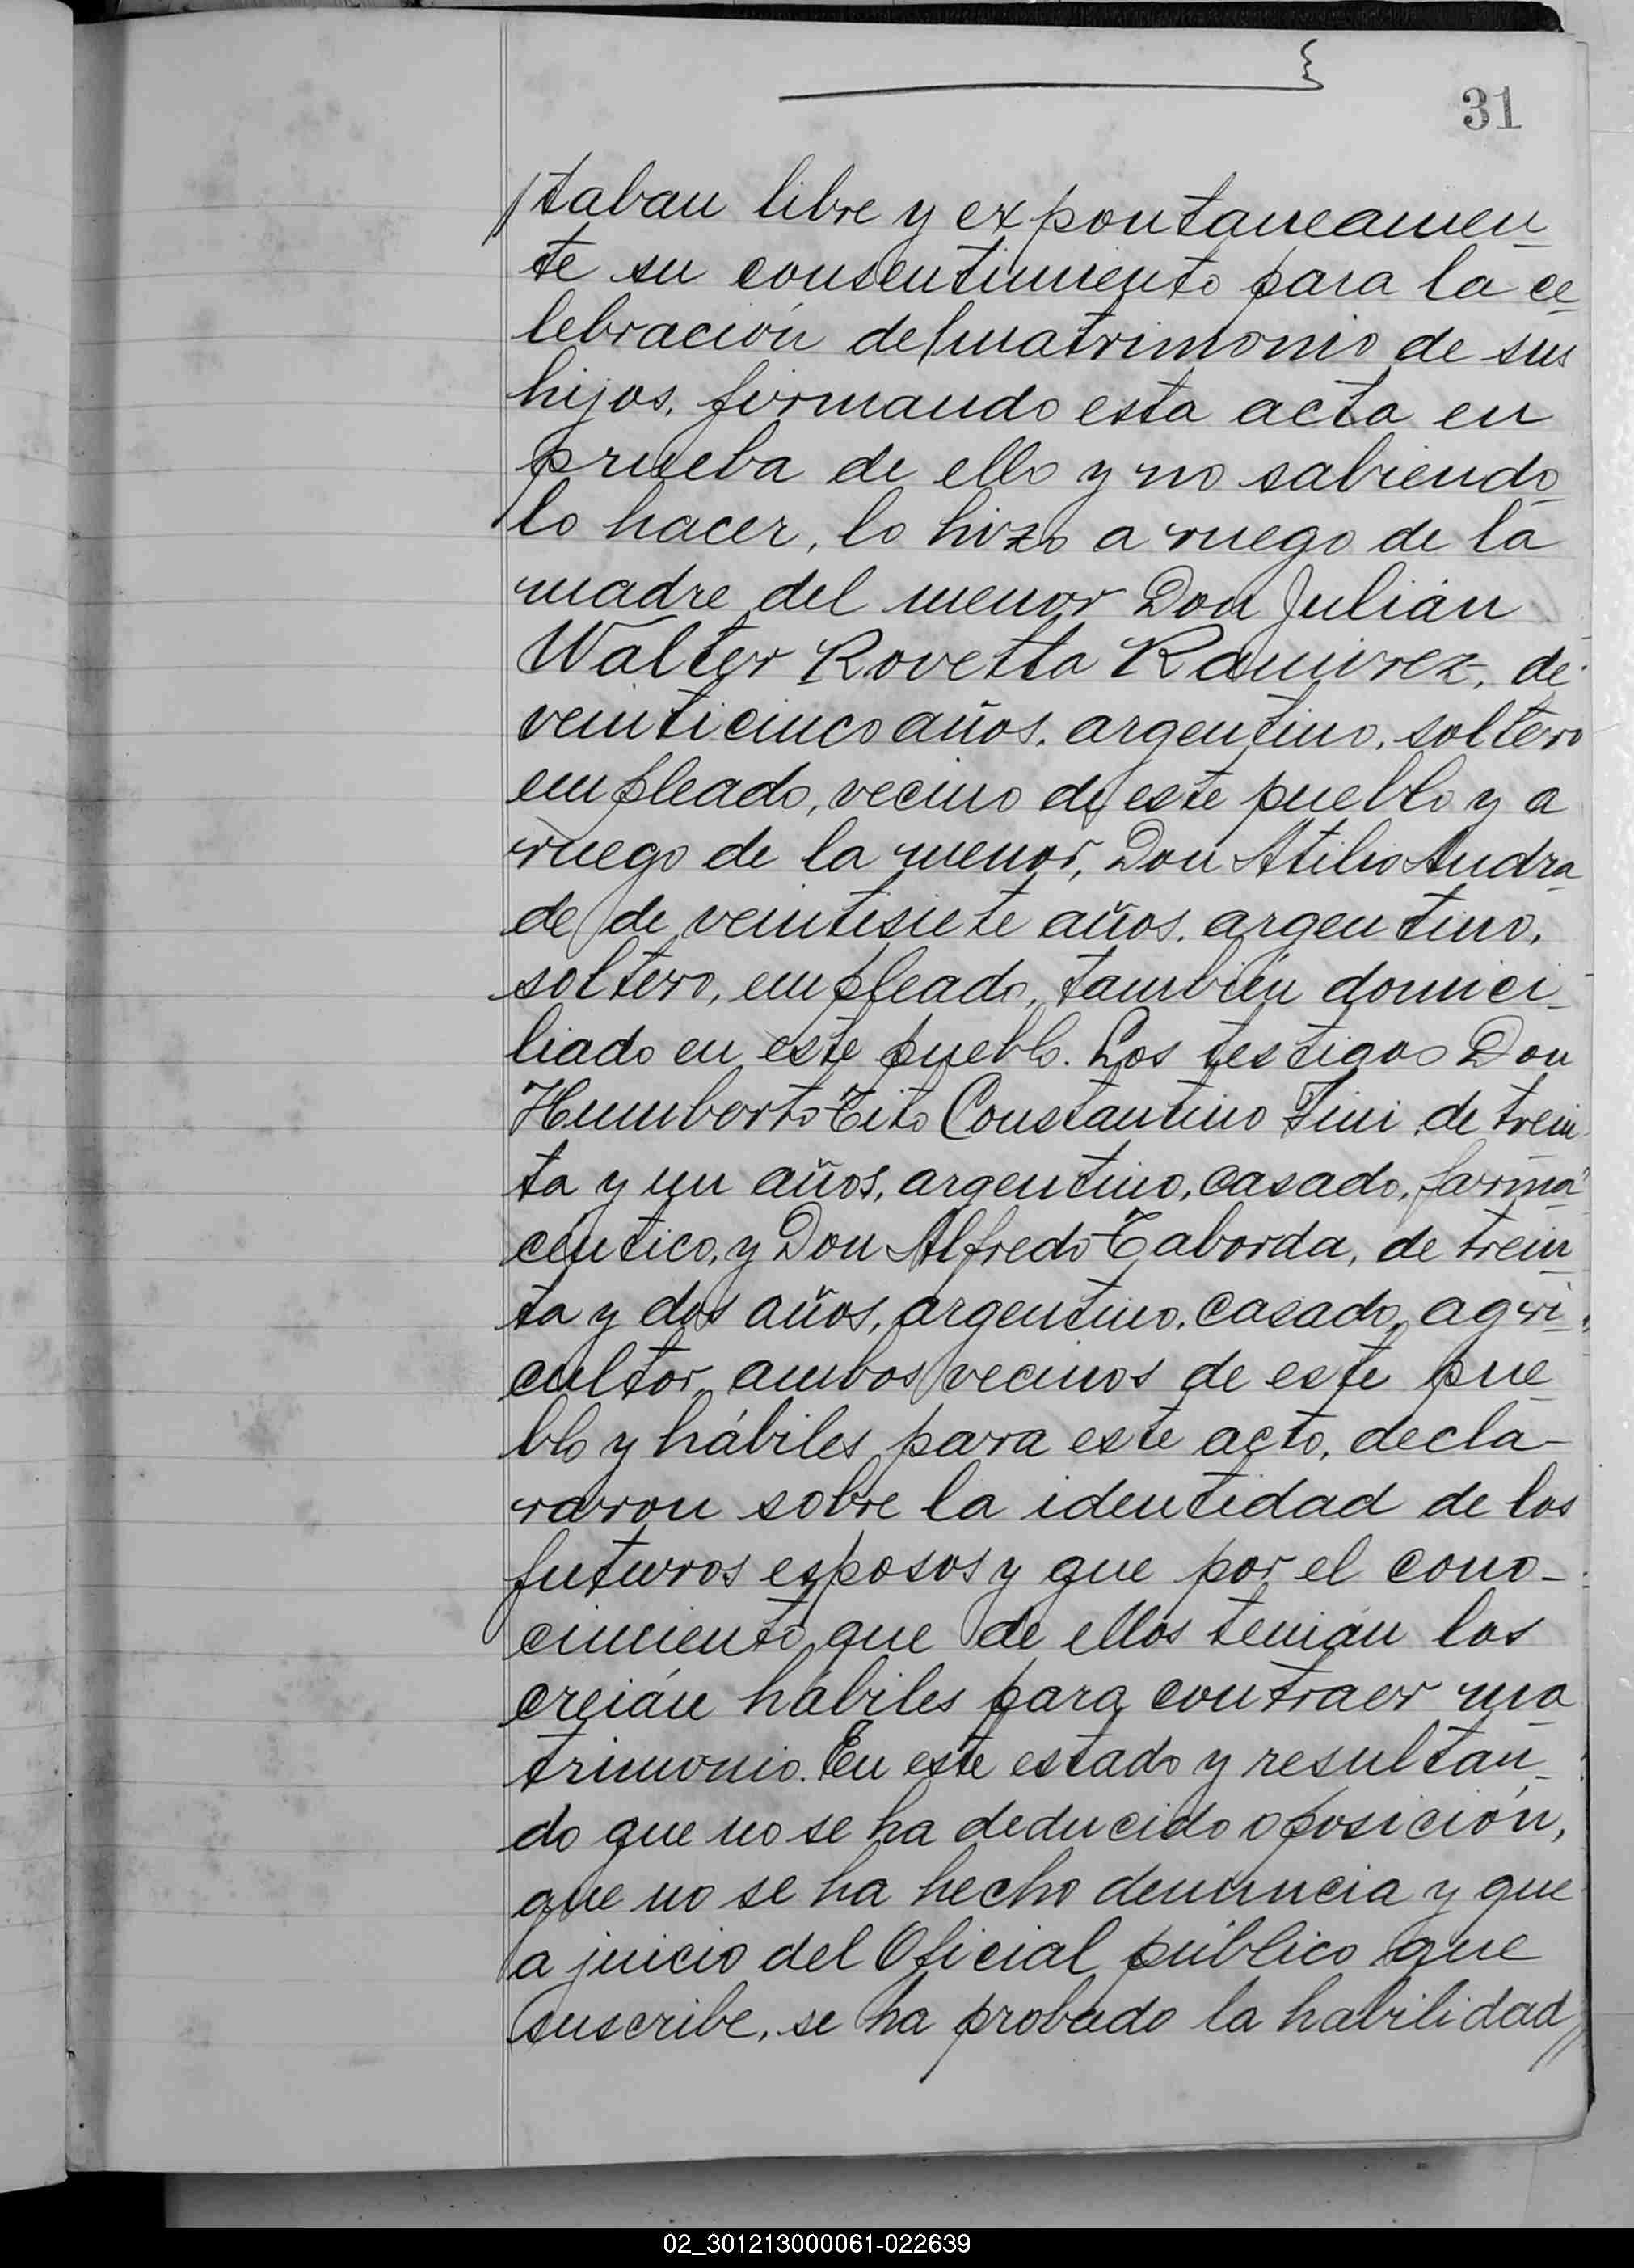 31
//taban libre y expontaneamen_
te su consentimiento para la ce_
lebración del matrimonio de sus
hijos, firmando esta acta en
prueba de ello y no sabiendo_
lo hacer, lo hizo a ruego de la
madre del menor Don Julián
Walter Rovetta Ramirez, de
veinticinco años, argentino, soltero
empleado, vecino de este pueblo y a
ruego de la menor, Don Atilio Andra_
de de veintisiete años, argentino,
soltero, empleado, también domici_
liado en este pueblo. Los testigos Don
Humberto Tito Constantino Fini, de trein_
ta y un años, argentino, casado, farma_
céutico, y Don Alfredo Taborda, de trein_
ta y dos años, argentino, casado, agri_
cultor, ambos vecinos de este pue_
blo y hábiles para este acto, decla_
raron sobre la identidad de los
futuros esposos y que por el cono_
cimiento que de ellos tenián los
creián hábiles para contraer ma_
trimonio. En este estado y resultan_
do que no se ha deducido oposición,
que no se ha hecho denuncia y que
a juicio del Oficial público que
suscribe, se ha probado la habilidad//
02_301213000061-022639